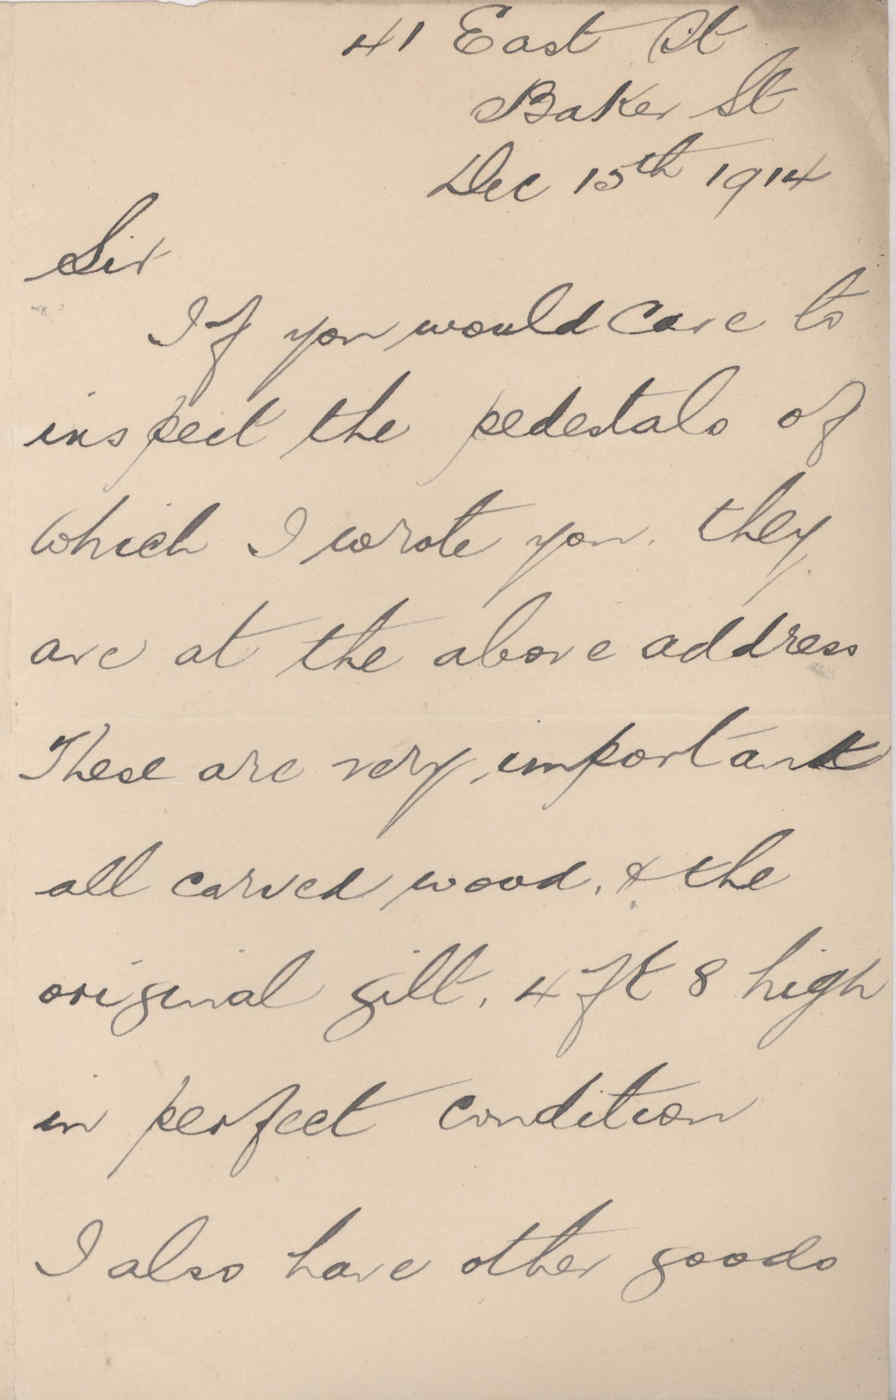 41 East St
Baker St
Dec 15th 1914
Sir
If you would care to
inspect the pedestals of
which I wrote you. they
are at the above address
These are very important
all carved wood, & the
original gilt. 4 ft 8 high
in perfect condition
I also have other goods